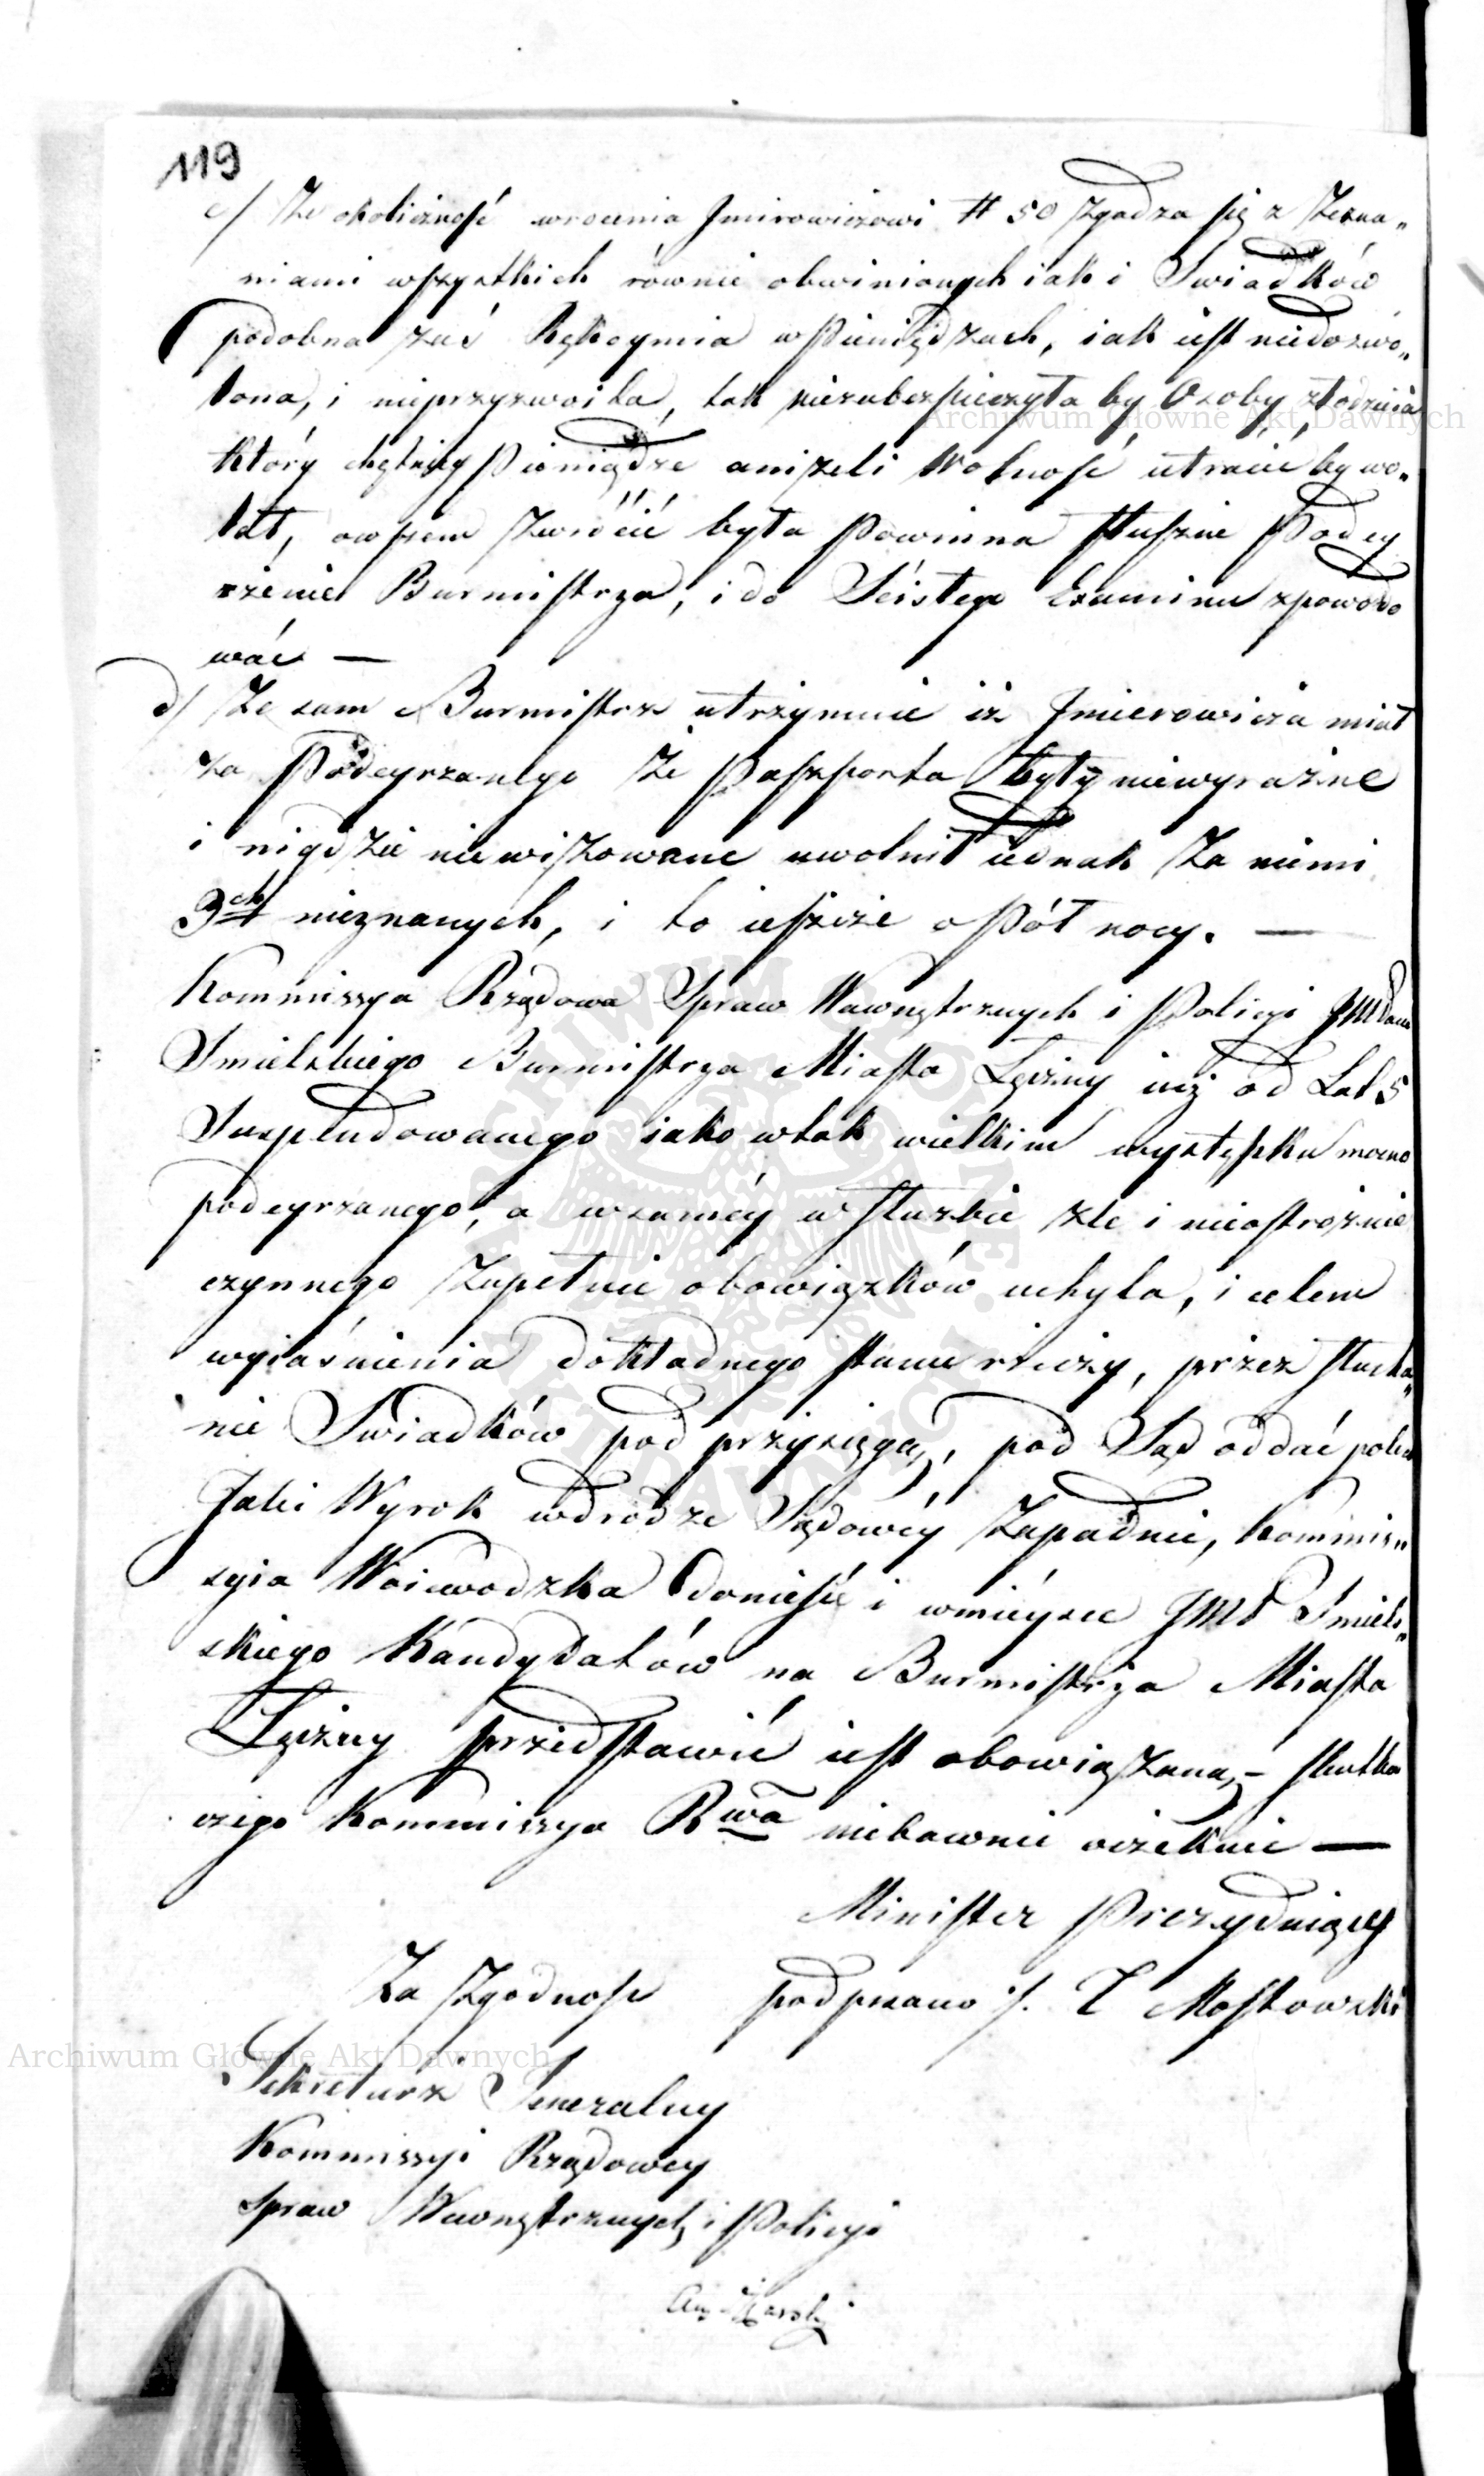 119
c/ Że okoliczność wrócenia Jmirowiczowi # 50 zgadza się z Zezna„
niami wszystkich równie obwinionych iak i Swiadków
podobna zaś Rękoymia w Pieniądzach, iak iest niedozwo„
lona, i nieprzyzwoita, tak niezabezpieczyła by Osoby złodzieia
który chętniey Pieniądze aniżeli Wolność utracić by wo„
lał, owszem zwrócić była Powinna słuszne Podey
rzenie Burmistrza, i do Scisłego Examinu spowodo
wać —
d/ Że sam Burmistrz utrzymuie iż Jmierowicza miał
za Podeyrzanego że Paszporta były niewyraźne
i nigdzie niewizowane uwolnił iednak za niemi
3ch nieznanych, i to ieszcze o Pół nocy. —
Kommissya Rządowa Spraw Wewnętrznych i Policyi JMPana
Smielskiego Burmistrza Miasta Łęczny iuż od Lat 5
Suspendowanego iako w tak wielkim występku mocno
podeyrzanego, a w samey w służbie źle i nieostrożnie
czynnego zupełnie obowiązków uchyla, i celem
wyiaśnienia dokładnego stanu rzeczy, przez słucha„
nie Swiadków pod przysięgą, pod Sąd oddać poleca
Jaki Wyrok w drodze Sądowéy zapadnie, Kommis„
syia Woiewodzka donieść i w mieysce JMP Smiels„
skiego Kandydatów na Burmistrza Miasta
Łęczny przedstawić iest obowiązana, – skutku
czego Kommissya Rwa niebawnie oczekuie —
Minister Prezyduiący
Za zgodność podpisano /. T Mostowski
Sekretarz Generalny
Kommissyi Rządowey
Spraw Wewnętrznych i Policyi
Archiwum Główne Akt Dawnych
Archiwum Główne Akt Dawnych
ARCHIWUM GŁÓWNE AKT DAWNYCH